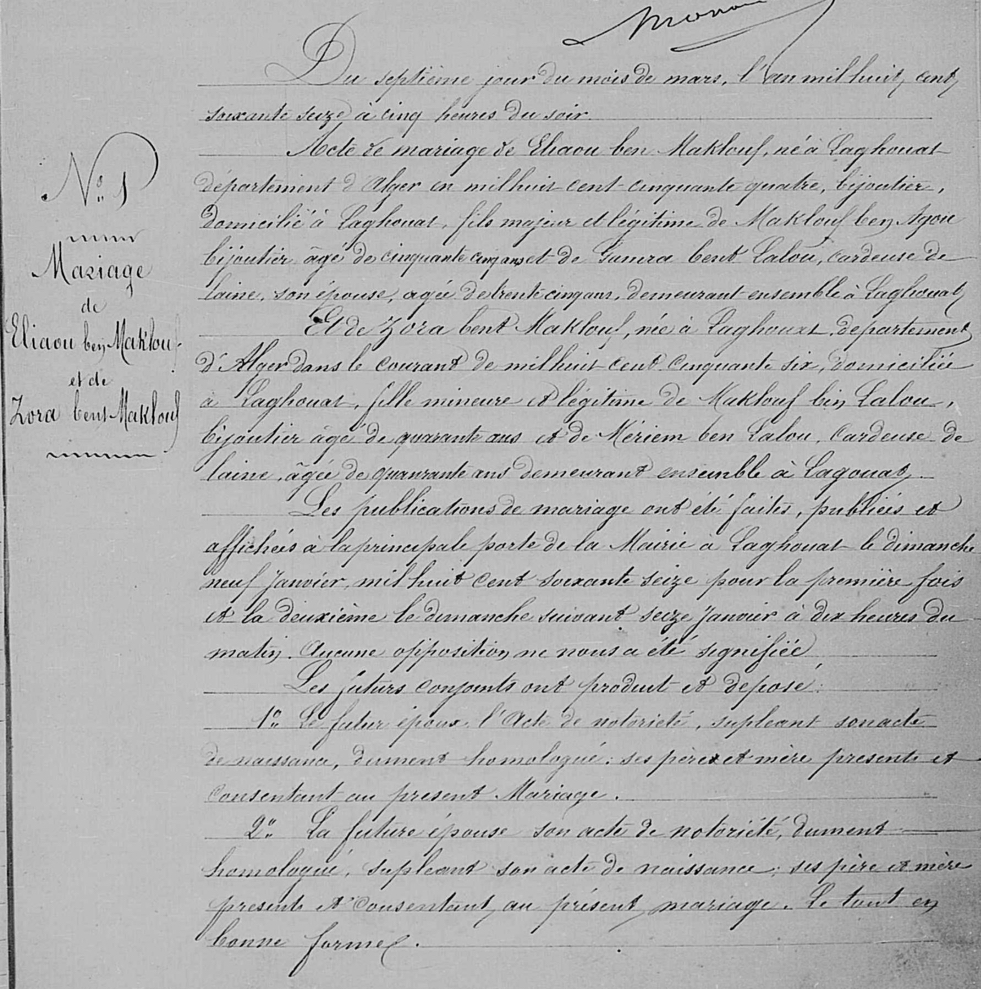 Du septième jour du mois de mars, l'an mil huit cent
soixante seize à cinq heures du soir.
Acte de mariage de Eliaou ben Maklouf, né à Laghouat
département d'Alger en mil huit cent cinquante quatre, bijoutier,
domicilié à Laghouat, fils majeur et légitime de Maklouf ben Ayou
bijoutier âgé de cinquante cinq ans et de Gumra bent Lalou, cardeuse de
laine, son épouse, agée de trente cinq ans, demeurant ensemble à Laghouat
Et de Zora bent Maklouf, née à Laghouat, departement
d'Alger dans le courant de mil huit cent cinquante six, domiciliée
à Laghouat, fille mineure et légitime de Maklouf bin Lalou,
bijoutier âgé de quarante ans et de Mériem ben Lalou, cardeuse de
laine, âgée de quaurante ans demeurant ensemble à Lagouat
Les publications de mariage ont été faites, publiées et
affichées à la principale porte de la Mairie à Laghouat le dimanche
neuf Janvier, mil huit cent soixante seize pour la première fois
et la deuxième le dimanche suivant seize Janvier à dix heures du
matin. Aucune opposition ne nous a été signifiée
Les futurs conjoints ont produit et deposé:
1º Le futur époux l'Acte de notorieté, supleant son acte
de naissance, dument homologué; ses père et mère presents et
consentant au present Mariage.
2º La future épouse son acte de notoriété, dument
homologué, supleant son acte de naissance; ses père et mère
presents et consentant au présent mariage. Le tout en
bonne forme.
Nº 1
Mariage
de
Eliaou ben Maklouf
et de
Zora bent Maklouf